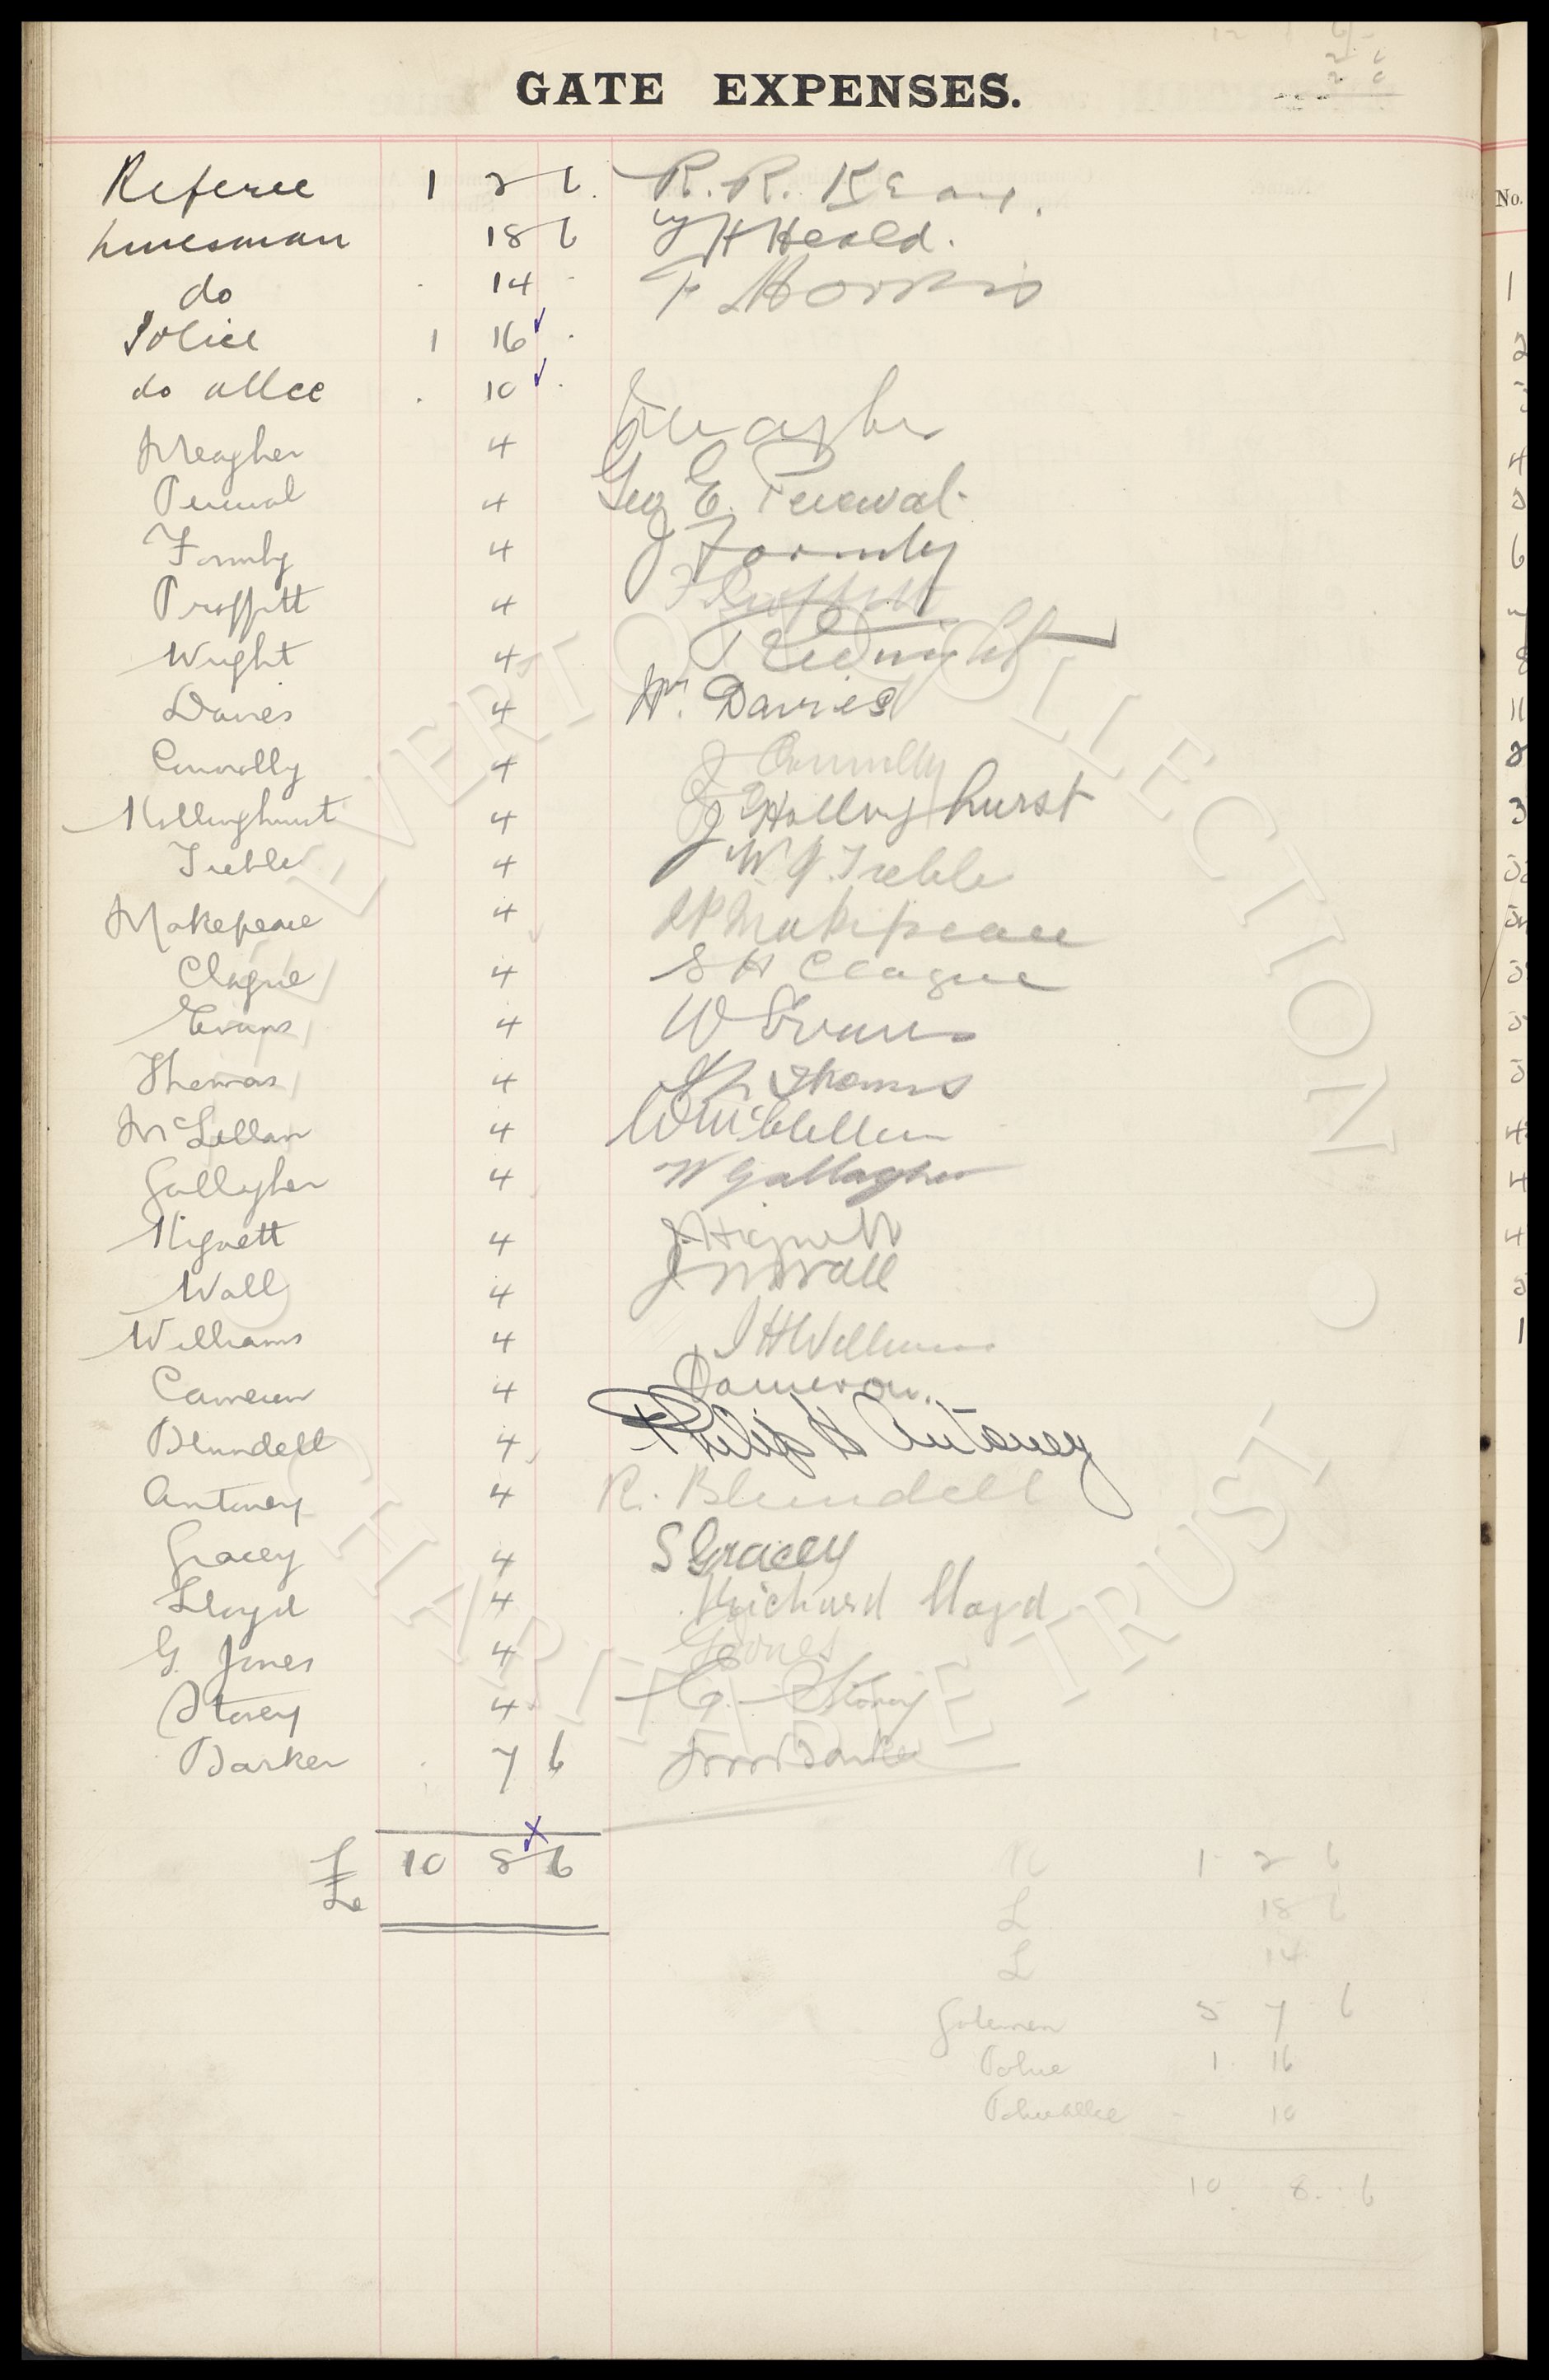 GATE EXPENSES.
Referee 1 2 6 R. R. Kean.
Linesman 18 6 H Heald.
do . 14 - F Morris
Police 1 16 .
do allce . 10 .
Meagher 4 Meagher
Percival 4 Geo E. Percival
Formby 4 J Formby
Proffitt 4 F Proffitt
Wright 4 Wright
Davies 4 Wm. Davies
Connolly 4 J Connolly
Hollinghurst 4 J Hollinghurst
Treble 4 W. J. Treble
Makepeace 4 Makepeace
Clague 4 S H Clague
Evans 4 W Evans
Thomas 4 Thomas
McLellan 4 W McClellan
Gallagher 4 W Gallagher
Hignett 4 J. Hignett
Wall 4 J Wall
Williams 4 J H Williams
Cameron 4 Cameron.
Blundell 4 Philip H Antoney
Antoney 4 R. Blundell
Gracey 4 S Gracey
Lloyd 4 Richard Lloyd
G. Jones 4 G Jones
Storey 4 G. Storey
Barker . 7 6 Barker
£ 10 8 6
R 1 2 6
L 18 6
L 14
Gatemen 5 7 6
Police 1 16
Police allce - 10
10. 8. 6
No.
1
2
3
4
5
6
7
8
11
2
3
EVERTON COLLECTION CHARITABLE TRUST